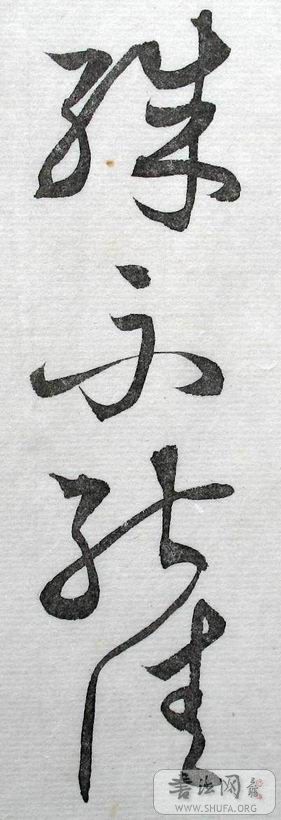 殊不能佳
書法网
WWW.SHUFA.ORG